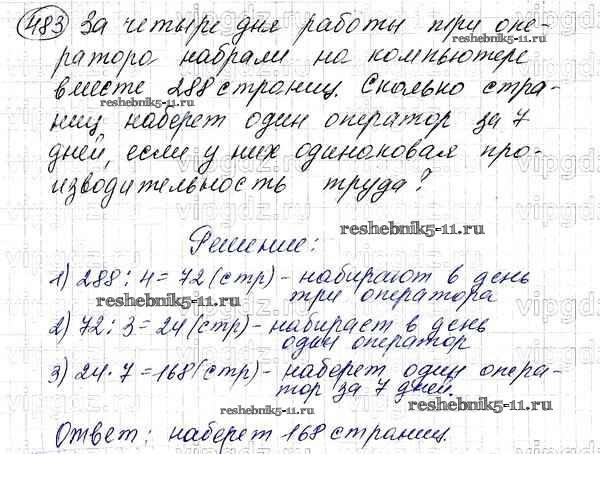 483 За четыре дня работы три опе-
ратора набрали на компьютере
вместе 288 страниц. Сколько стра-
ниц наберет один оператор за 7
дней, если у них одинаковая про-
изводительность труда?
Решение:
1) 288 : 4 = 72 (стр) - набирают в день
три оператора
2) 72 : 3 = 24 (стр) - набирает в день
один оператор
3) 24 · 7 = 168 (стр) - наберет один опера-
тор за 7 дней.
Ответ: наберет 168 страниц.
reshebnik5-11.ru
reshebnik5-11.ru
reshebnik5-11.ru
reshebnik5-11.ru
reshebnik5-11.ru
reshebnik5-11.ru